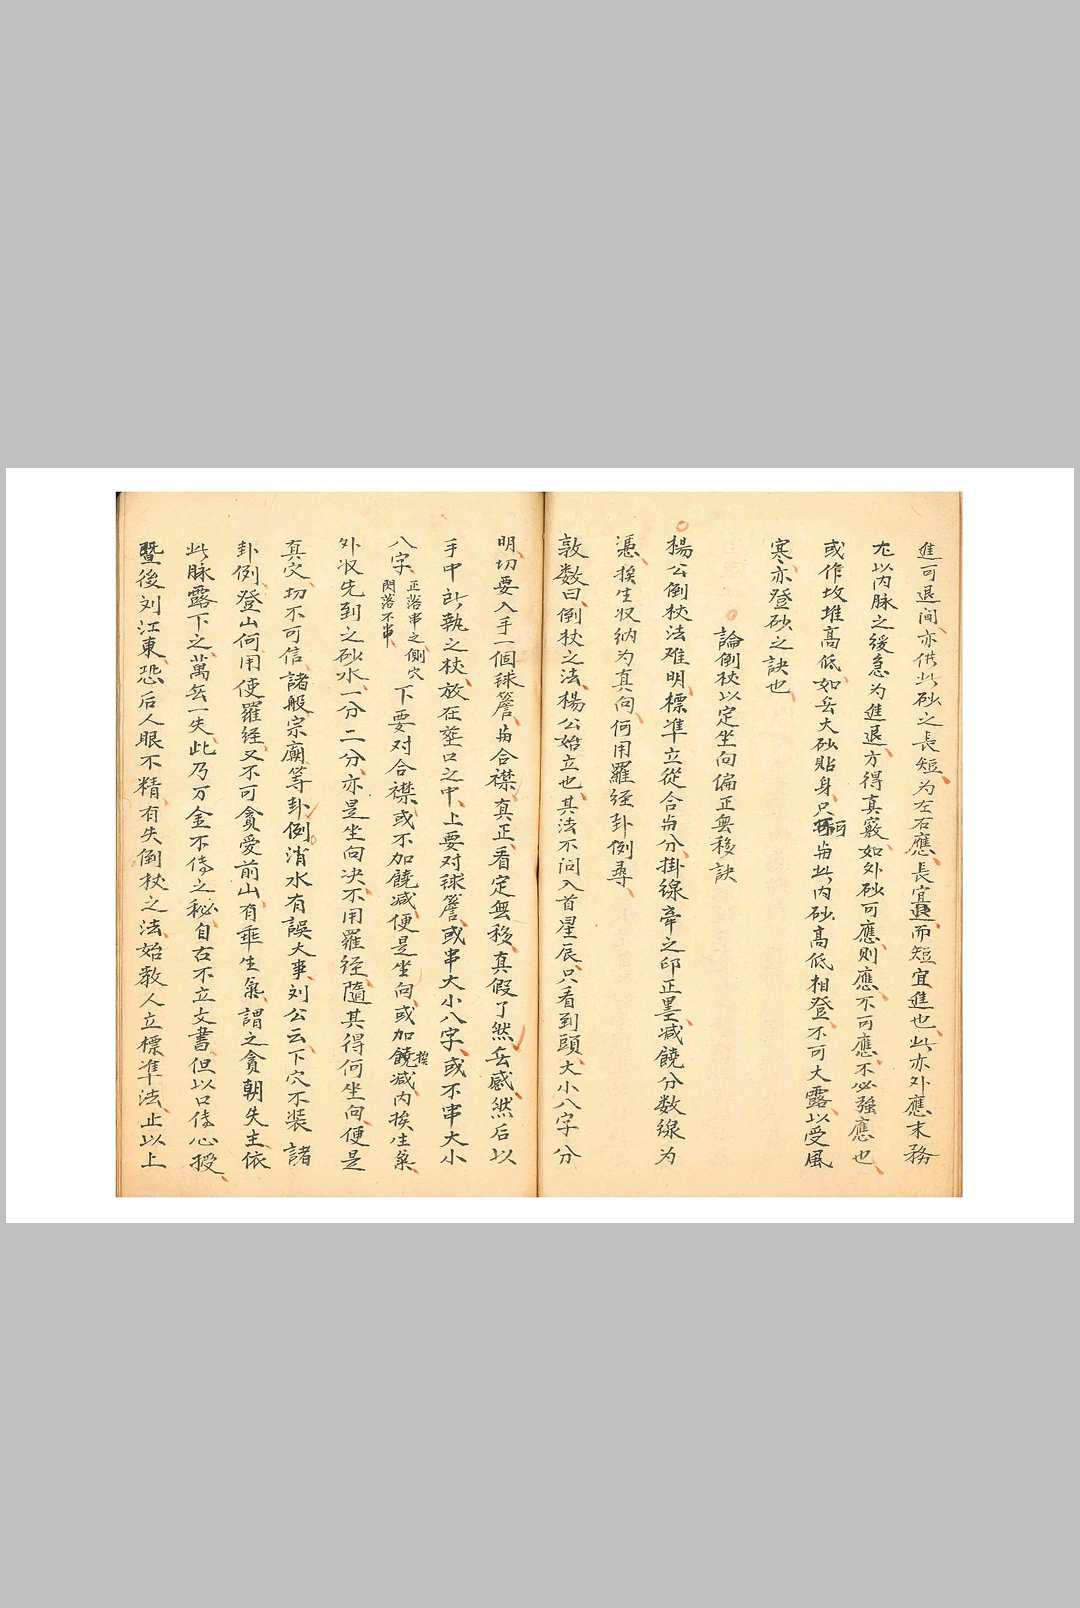 進可退间亦借此砂之長短为左右應長宜退而短宜進也此亦外應末務
尤以内脉之缓急为進退方得真竅如外砂可應則應不可應不必强應也
或作坟堆高低如無大砂貼身只与此内砂高低相登不可大露以受風
寒亦登砂之訣也
論倒杖以定坐向偏正無移訣
楊公倒杖法难明標準立從合与分掛線牵之印正墨减饒分数線为
憑挨生収納为真向何用羅经卦例尋
敦数曰倒杖之法楊公始立也其法不问入首星辰只看到頭大小八字分
明切要入手一個毬簷与合襟真正看定無移真假了然無惑然后以
手中所執之杖放在塟口之中上要对毬簷或串大小八字或不串大小
八字正落串之側穴閃落不串下要对合襟或不加饒减便是坐向或加饒减内挨生氣
外収先到之砂水一分二分亦是坐向决不用羅经隨其得何坐向便是
真穴切不可信諸般宗廟等卦例消水有誤大事刘公云下穴不装諸
卦例登山何用使羅经又不可貪愛前山有乖生氣謂之貪朝失主依
此脉露下之萬無一失此乃万金不傳之秘自古不立文書但以口傳心授
暨後刘江東恐后人眼不精有失倒杖之法始教人立標準法止以上